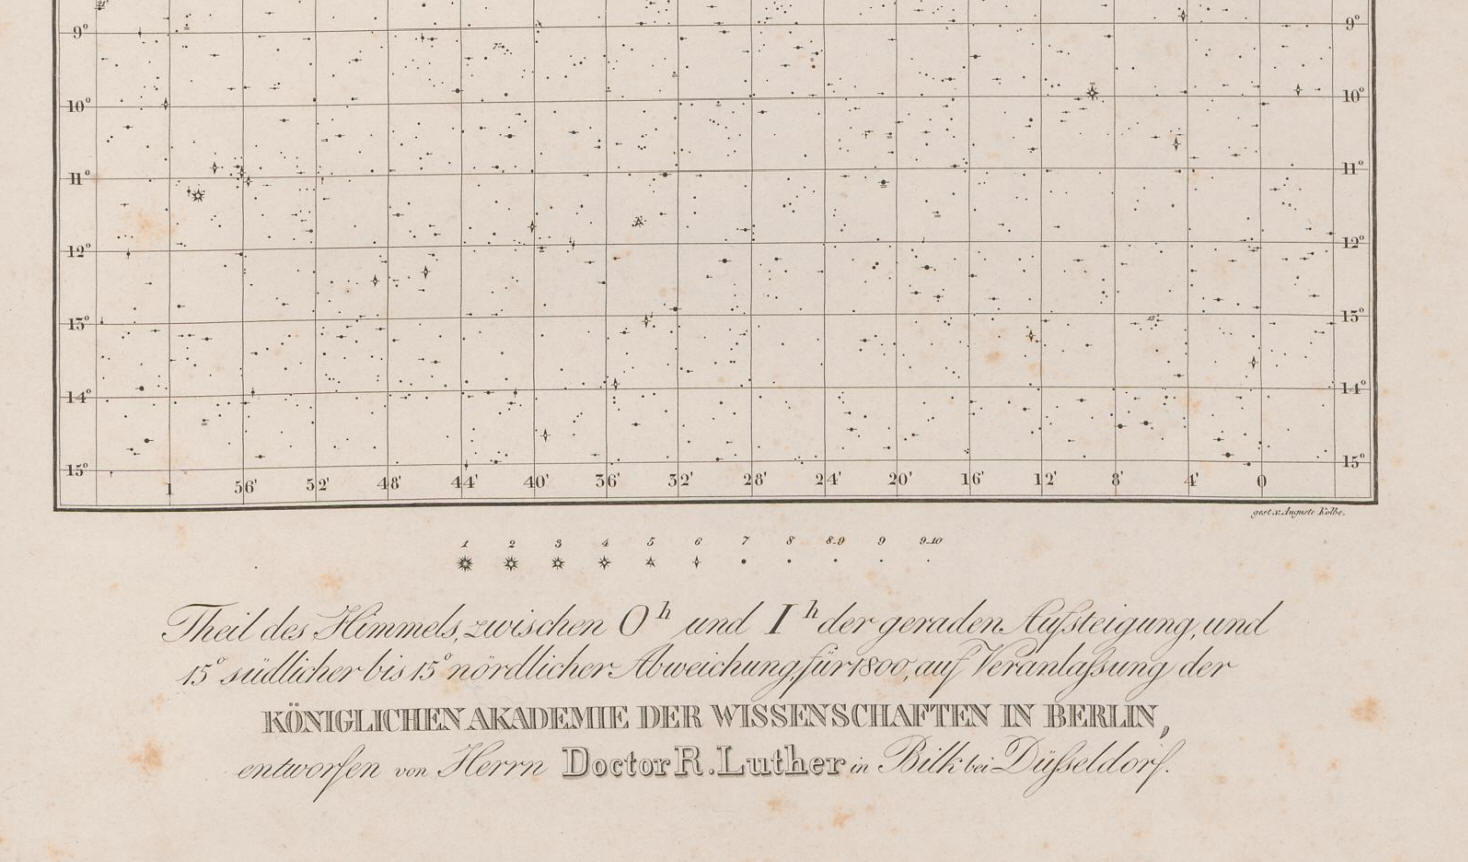 9° 9°
10° 10°
11° 11°
12° 12°
13° 13°
14° 14°
15° 15°
1 56' 52' 48' 44' 40' 36' 32' 28' 24' 20' 16' 12' 8' 4' 0
gest. v. Auguste Kolbe.
1 2 3 4 5 6 7 8 8.9 9 9.10
Theil des Himmels, zwischen 0ʰ und Iʰ der geraden Aufsteigung, und
15° südlicher bis 15° nördlicher Abweichung, für 1800, auf Veranlaßung der
KÖNIGLICHEN AKADEMIE DER WISSENSCHAFTEN IN BERLIN,
entworfen von Herrn Doctor R. Luther in Bilk bei Düßeldorf.